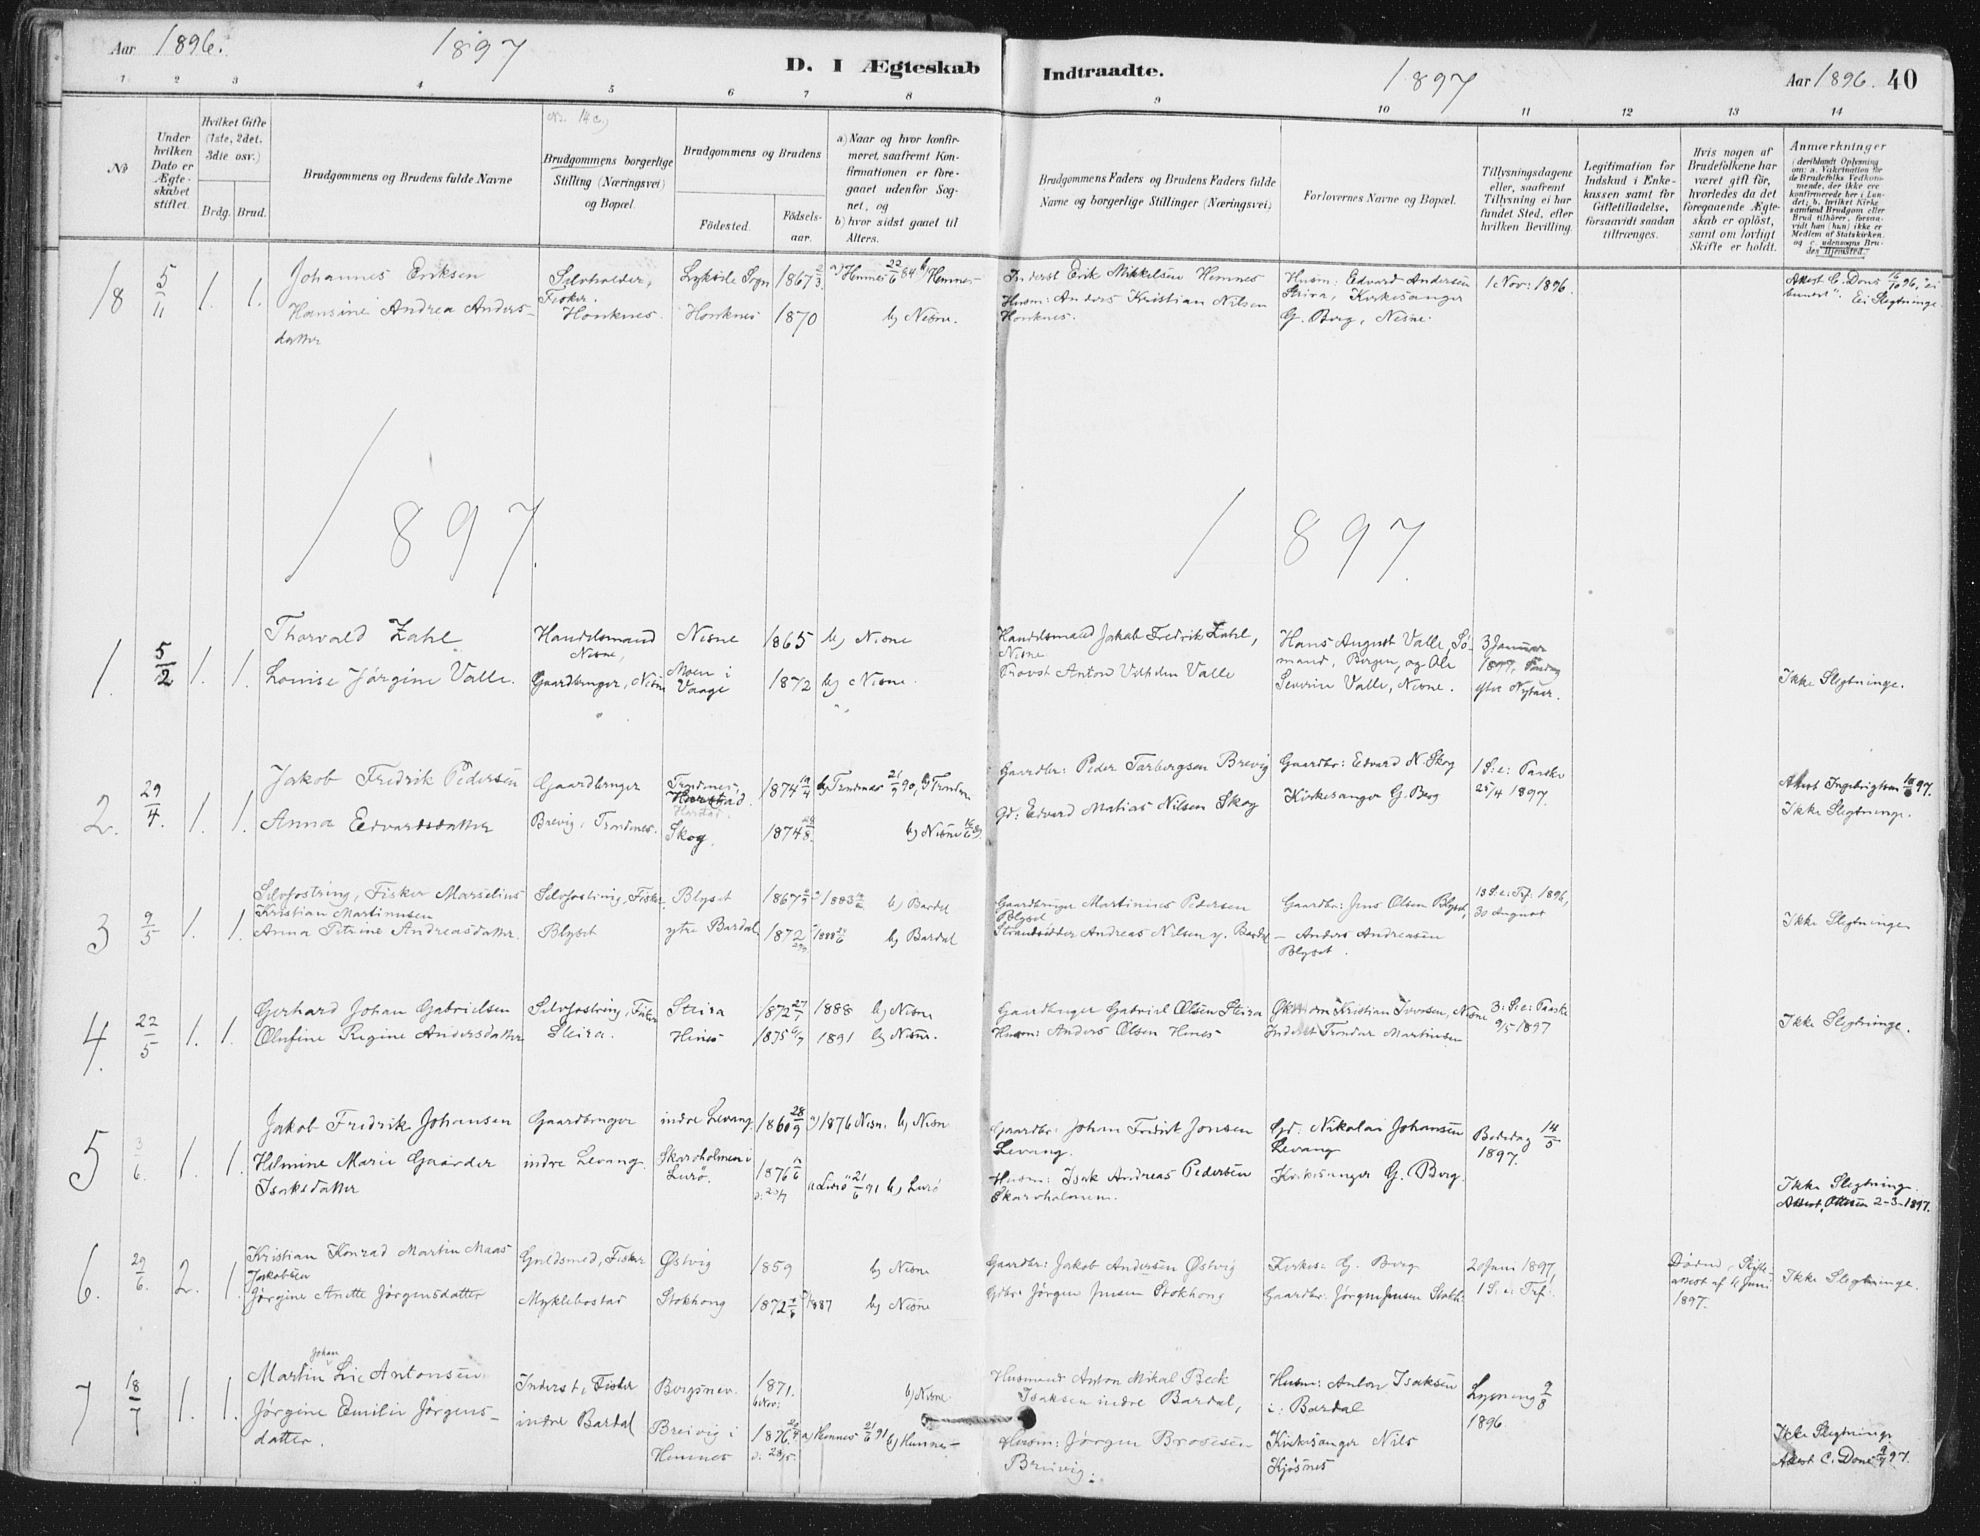 Aar 1896. 1897 D. I Ægteskab Indtraadte. 1897 Aar 1896. 40
1 2 3 4 5 6 7 8 9 10 11 12 13 14
No
Under hvilken Dato er Ægteskabet stiftet.
Hvilket Gifte (1ste, 2det, 3die osv.)
Brdg. Brud.
Brudgommens og Brudens fulde Navne
Nr. 14 c)
Brudgommens borgerlige Stilling (Næringsvei) og Bopæl.
Brudgommens og Brudens
Födested. Födselsaar.
a) Naar og hvor konfirmeret, saafremt Konfirmationen er foregaaet udenfor Sognet, og
b) hvor sidst gaaet til Alters.
Brudgommens Faders og Brudens Faders fulde Navne og borgerlige Stillinger (Næringsvei)
Forlovernes Navne og Bopæl.
Tillysningsdagene eller, saafremt Tillysning ei har fundet Sted, efter hvilken Bevilling.
Legitimation for Indskud i Enkekassen samt for Giftetilladelse, forsaavidt saadan tiltrænges.
Hvis nogen af Brudefolkene har været gift för, hvorledes da det foregaaende Ægteskab er oplöst, samt om lovligt Skifte er holdt.
Anmærkninger (deriblandt Oplysning om: a. Vakcination for de Brudefolks Vedkommende, der ikke ere konfirmerede her i Landet; b. hvilket Kirkesamfund Brudgom eller Brud tilhörer, forsaavidt han (hun) ikke er Medlem af Statskirken. og c. udensogns Brudes Hjemsted.)
18 5/11 1. 1. Johannes Eriksen
Hansine Andrea Andersdatter
Selvholder, Fisker. Honknes.
Sogn 1867 2/3 a) Hemnes 22/6 84 b) Hemnes
Honknes 1870 b) Nesne.
Inderst Erik Mikkelsen Hemnes
Husm: Anders Kristian Nilsen Honknes.
Husm: Edvard Andersen, Kirkesanger G. Borg, Nesne.
1 Nov: 1896.
Attest C. Dons 16/10 96, Ei Slegtninge
1897 1897.
1. 5/2 1. 1. Thorvald Zahl
Louise Jørgine Valle.
Handelsmand Nesne,
Gaardbruger, Nesne
Nesne 1865 b) Nesne
Moen i Vaage 1872 b) Nesne.
Handelsmand Jakob Fredrik Zahl, Nesne
Provst Anton Vilhelm Valle
Hans August Valle, Sømand, Bergen, og Ole Severin Valle, Nesne.
3 Januar 1897, Søndag efter Nytaar.
Ikke Slegtninge.
2. 29/4. 1. 1. Jakob Fredrik Pedersen
Anna Edvardsdatter
Gaardbruger
Brevig, Trondenes.
Trondenes, Harstad. 1874 19/4 a) Trondenes 21/9 90, b) Tronden
Skog. 1874 28/8. b) Nesne
Gaardbr: Peder Tarbergsen Brevig
Gd: Edvard Mathias Nilsen Skog
Gaardbr: Edvard N. Skog
Kirkesanger G. Borg
1 S: e: Paaske 25/4 1897.
Attest Ingebrigtsen 97.
Ikke Slegtninge.
3 9/5 1. 1. Selvfostring, Fisker Marselius Kristian Martinusen
Anna Petrine Andreasdatter.
Selvfostring, Fisker,
Blyset
Blyset 1867 a) 1883 b) Bardal
ytre Bardal, 1872 1888 b) Bardal
Gaardbruger Martinus Pedersen Blyset
Strandsidder Andreas Nilsen y. Bardal
Gaardbr: Jens Olsen Blyset,
— Anders Andreasen Blyset.
13 S: e: Trf. 1896, 30 August
Ikke Slegtninge
4. 22/5 1. 1. Gerhard Johan Gabrielsen
Olufine Regine Andersdatter
Selvfostring, Fisker
Steira.
Steira 1872 27/7 1888 b) Nesne
Hines 1875 6/7 1891 b) Nesne.
Gaardbruger Gabriel Olsen Steira
Husm: Anders Olsen Hines
Kristian Iversen, Nesne
Inderst Trondar Martinusen
3: S: e: Paaske 9/5 1897
Ikke Slegtninge.
5 3/6. 1. 1. Jakob Fredrik Johansen
Helmine Marie Gaarder Isaksdatter
Gaardbruger
indre Levang.
indre Levang 1860 28/9 a) 1876 Nesn. b) Nesn
Skarvholmen i Lurø. 1876 d: 23/7 a) Lurø 21/6 91 b) Lurø
Gaardbr: Johan Fredrik Jonsen Levang.
Husm: Isak Andreas Pedersen Skarvholmen.
Gd: Nikolai Johansen Levang
Kirkesanger G. Borg.
Bededag 14/5 1897.
Ikke Slegtninge.
Attest, Ottesen 2-3-1897.
6. 29/6. 2. 1. Kristian Konrad Martin Maas Jakobsen
Jørgine Anette Jørgensdatter
Guldsmed, Fisker
Myklebostad
Østvig 1859 b) Nesne
Stokhong 1872 1887 b) Nesne
Gaardbr: Jakob Andersen Østvig
Gdbr: Jørgen Jensen Stokhong
Kirkes: G. Borg
Gaardbr: Jørgen Jensen Stokh:
20 Juni 1897, 1 S: e: Trf:
Døden, Skifteattest af Juni 1897.
Ikke Slegtninge.
7 18/7 1. 1. Martin Johan Lie Antonsen
Jørgine Emilie Jørgensdatter.
Inderst, Fisker
indre Bardal
Borgsnev. 1871. 6 Nov: b) Nesne
Breivig i Hemnes 1876. d: 28/5. a) Hemnes 21/6 91 b) Hemnes
Husmand Anton Mikal Beck Isaksen indre Bardal,
Husm: Jørgen Brosesen Breivig.
Husm: Anton Isaksen i: Bardal
Kirkesanger Nils Kjøsnes
Lysning 9/8 1896.
Ikke Slegtninge
Attest C. Dons 97.